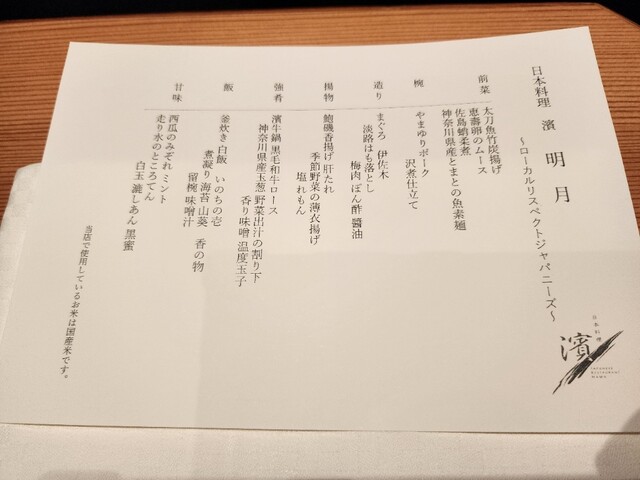 日本料理 濱 明月
～ローカルリスペクトジャパニーズ～
前菜
太刀魚竹炭揚げ
恵壽卵のムース
佐島蛸柔煮
神奈川県産とまとの魚素麺
椀
やまゆりポーク
沢煮仕立て
造り
まぐろ 伊佐木
淡路はも落とし
梅肉 ぽん酢 醬油
揚物
鮑磯香揚げ 肝たれ
季節野菜の薄衣揚げ
塩 れもん
強肴
濱牛鍋 黒毛和牛ロース
神奈川県産玉葱 野菜出汁の割り下
香り味噌 温度玉子
飯
釜炊き白飯 いのちの壱
煮凝り 海苔 山葵 香の物
留椀 味噌汁
甘味
西瓜のみぞれ ミント
走り水のところてん
白玉 漉しあん 黒蜜
当店で使用しているお米は国産米です。
日本料理
濱
JAPANESE
RESTAURANT
HAMA